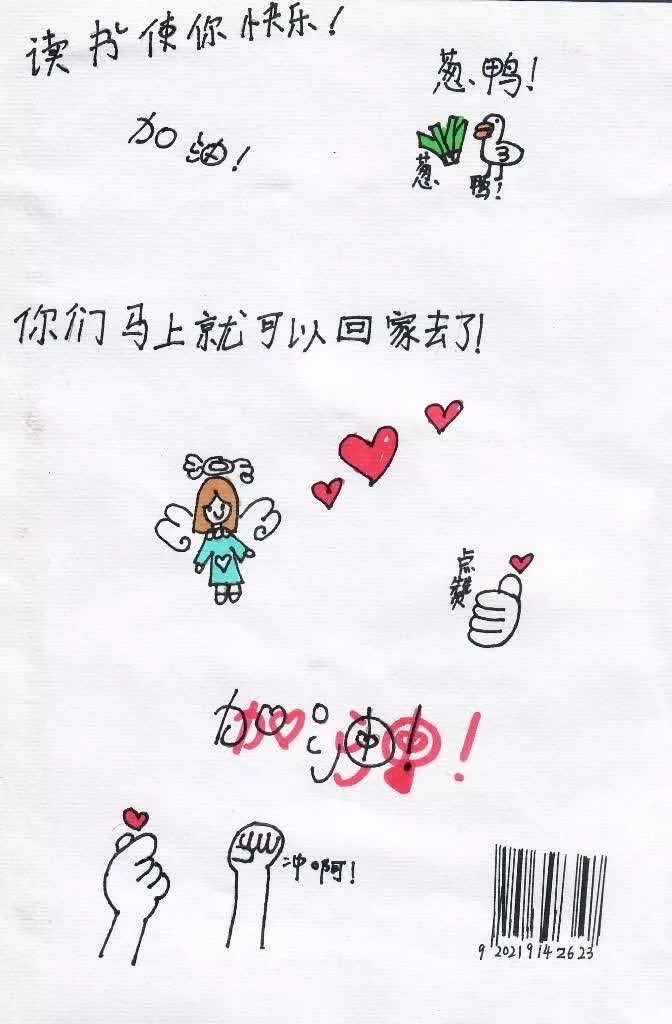 读书使你快乐！
葱鸭！
加油！
葱
鸭！
你们马上就可以回家去了！
点赞
加油！
冲啊！
9 20219142623